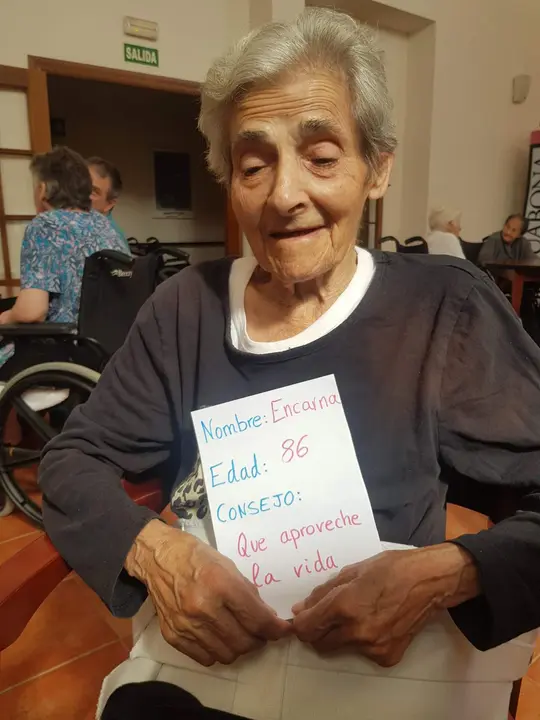 SALIDA
Nombre: Encarna
Edad: 86
CONSEJO:
Que aproveche
la vida
JABONA